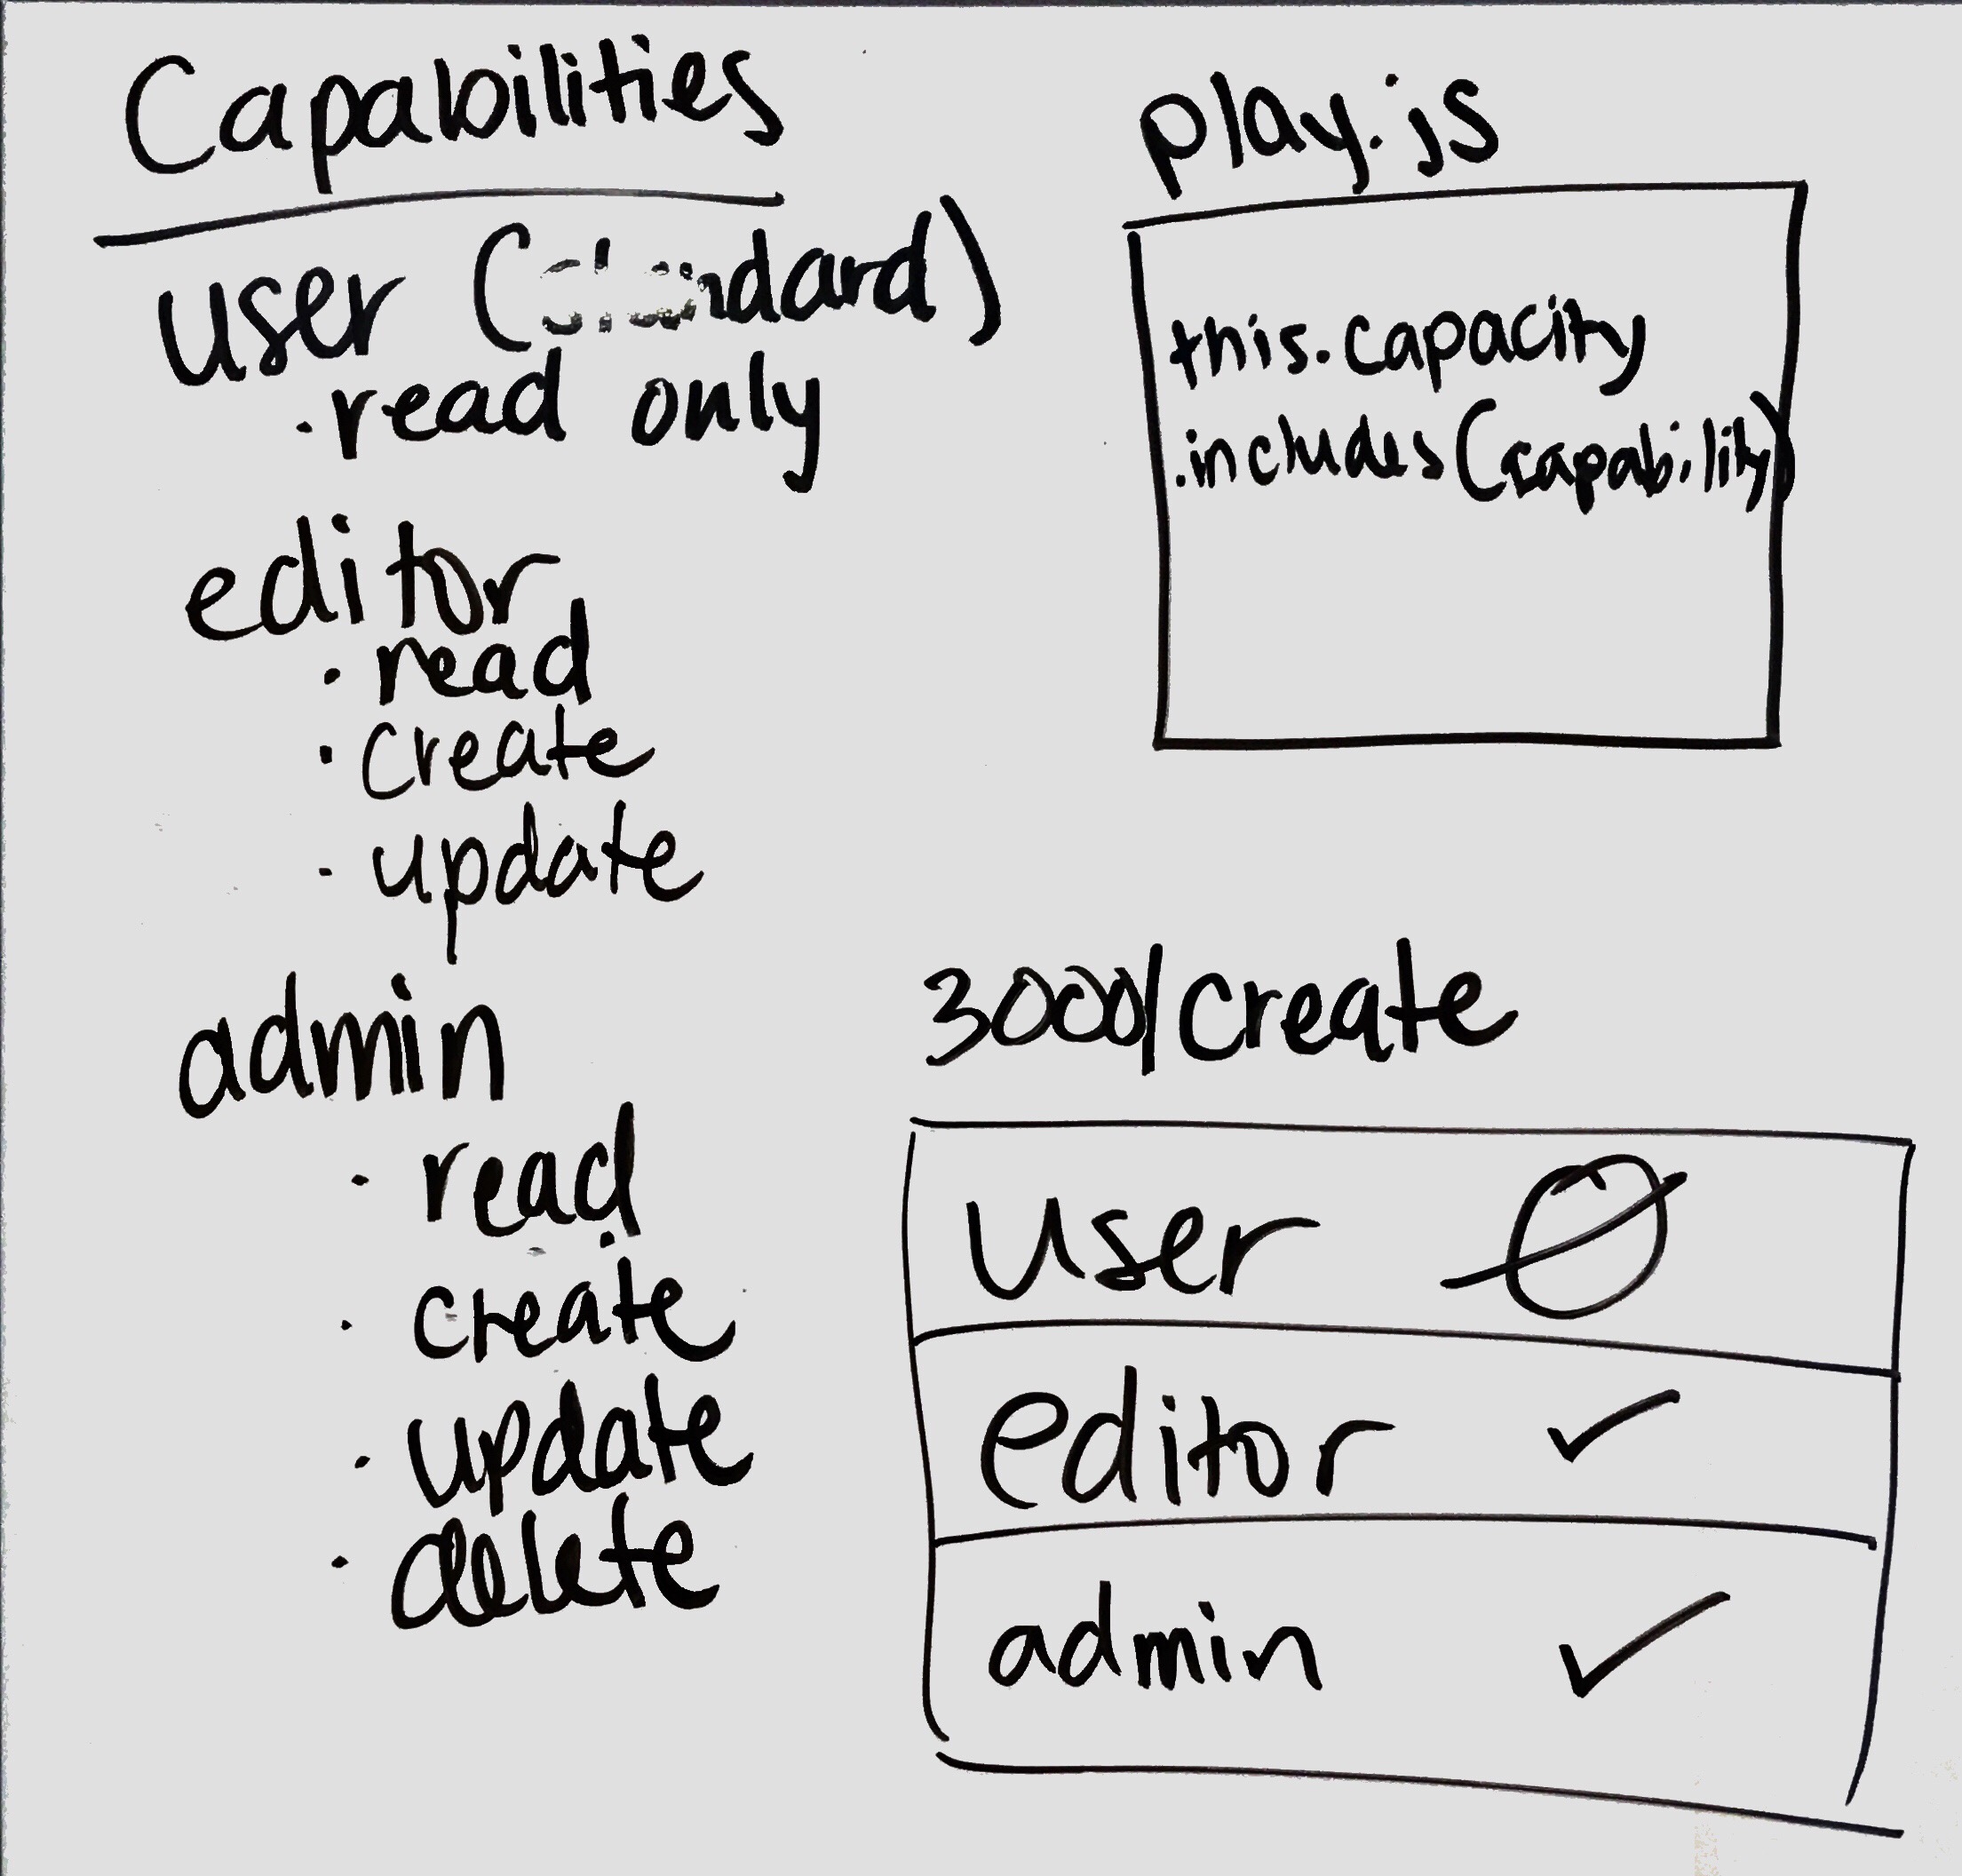 Capabilities
user (standard)
· read only
editor
· read
· create
· update
admin
· read
· create
· update
· delete
play.js
this.capacity
.includes(capability)
3000/create
user Ø
editor ✓
admin ✓